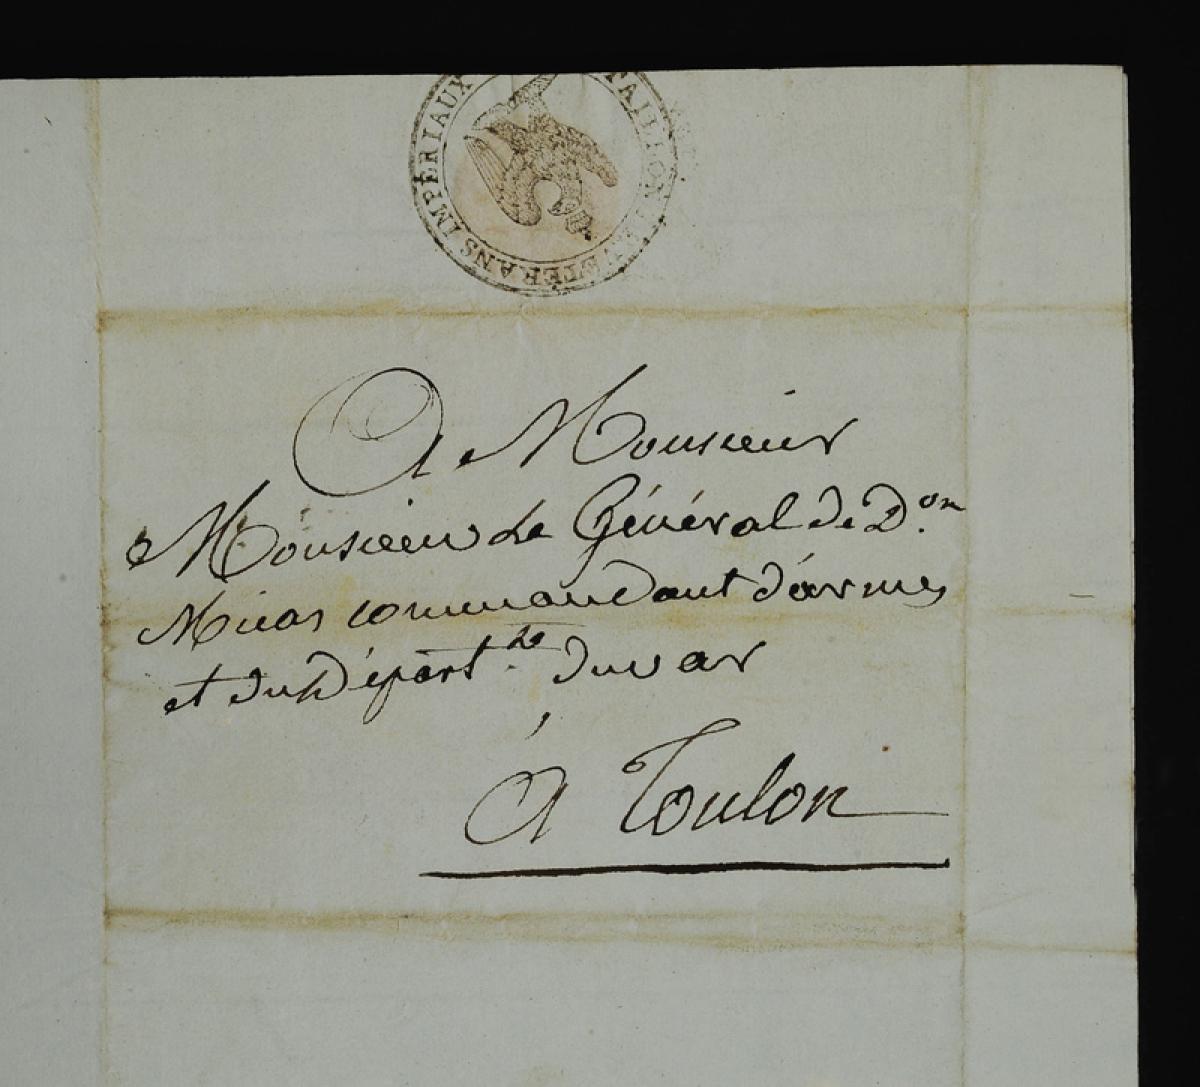 TAILLON VÉTÉRANS IMPÉRIAUX
A Monsieur
Monsieur Le Général de D.on
Micas commandant d'armes
et du Départ.t du var
à Toulon